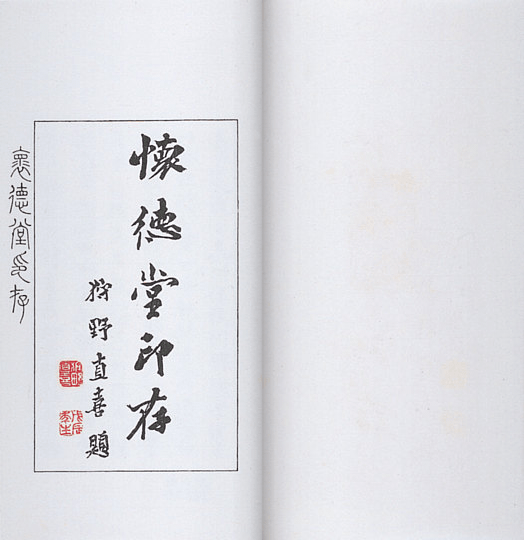 懐徳堂印存
狩野直喜題
褱德堂印存